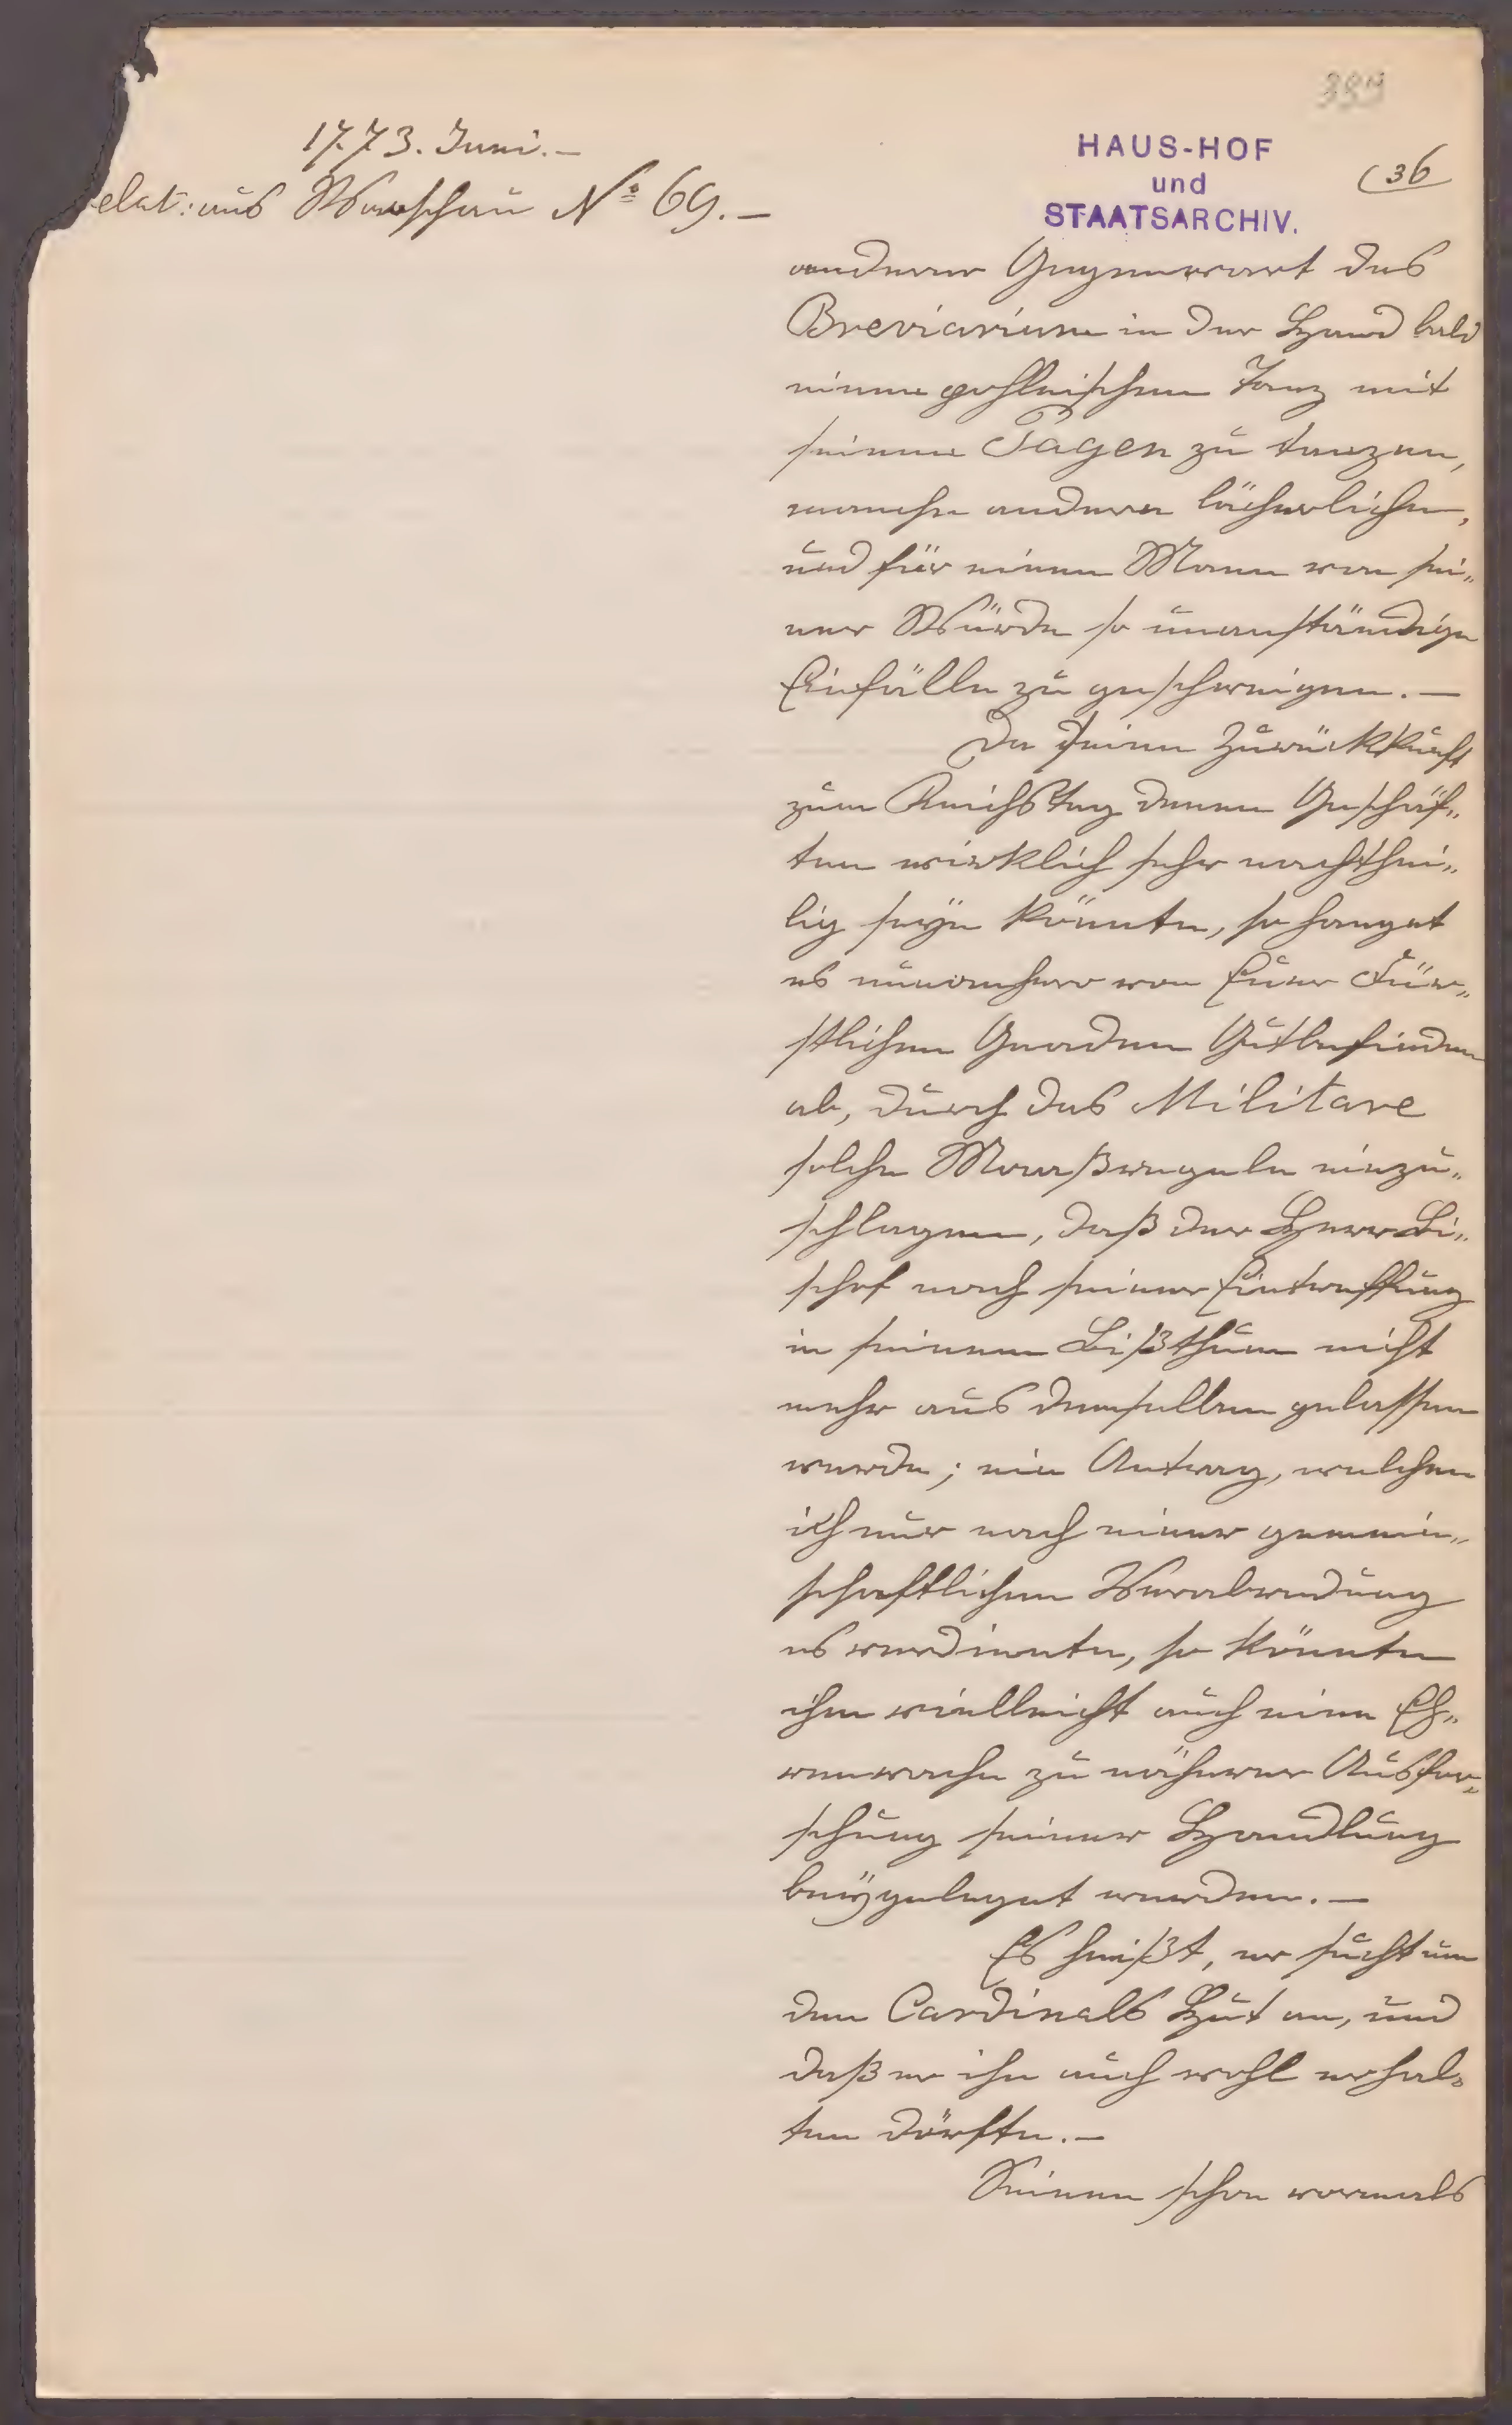 389
1773. Juni. –
elat: aus Warschau No 69. –
HAUS-HOF
und
STAATSARCHIV.
(36
anderer Gegenwart das
Breviarium in der Hand bald
einen pohlnischen Tanz mit
seinen Pagen zu tanzen,
manche andere lächerliche,
und für einen Mann von sei„
ner Würde so unanständige
Einfälle zu geschweigen. –
Da seine Zurückkunft
zum Reichstag denen Geschäf„
ten wirklich sehr nachthei„
lig seÿn könnte, so hanget
es nunmehro von Euer Für„
stlichen Gnaden Gutbefinden
ab, durch das Militare
solche Maaßregeln einzu„
schlagen, daß der Herr Bi„
schof nach seiner Eintreffung
in seinem Bißthum nicht
mehr aus demselben gelassen
werde; ein Antrag, welchen
ich nur nach einer gemein„
schaftlichen Verabredung
es verdiente, so könnte
ihm vielleicht auch eine Eh„
renwache zu näherer Ausfor„
schung seiner Handlung
beÿgelegt werden. –
Es heißt, er sucht um
den Cardinals Hut an, und
daß er ihn auch wohl erhal„
ten dörfte. –
Seinen schon vormals